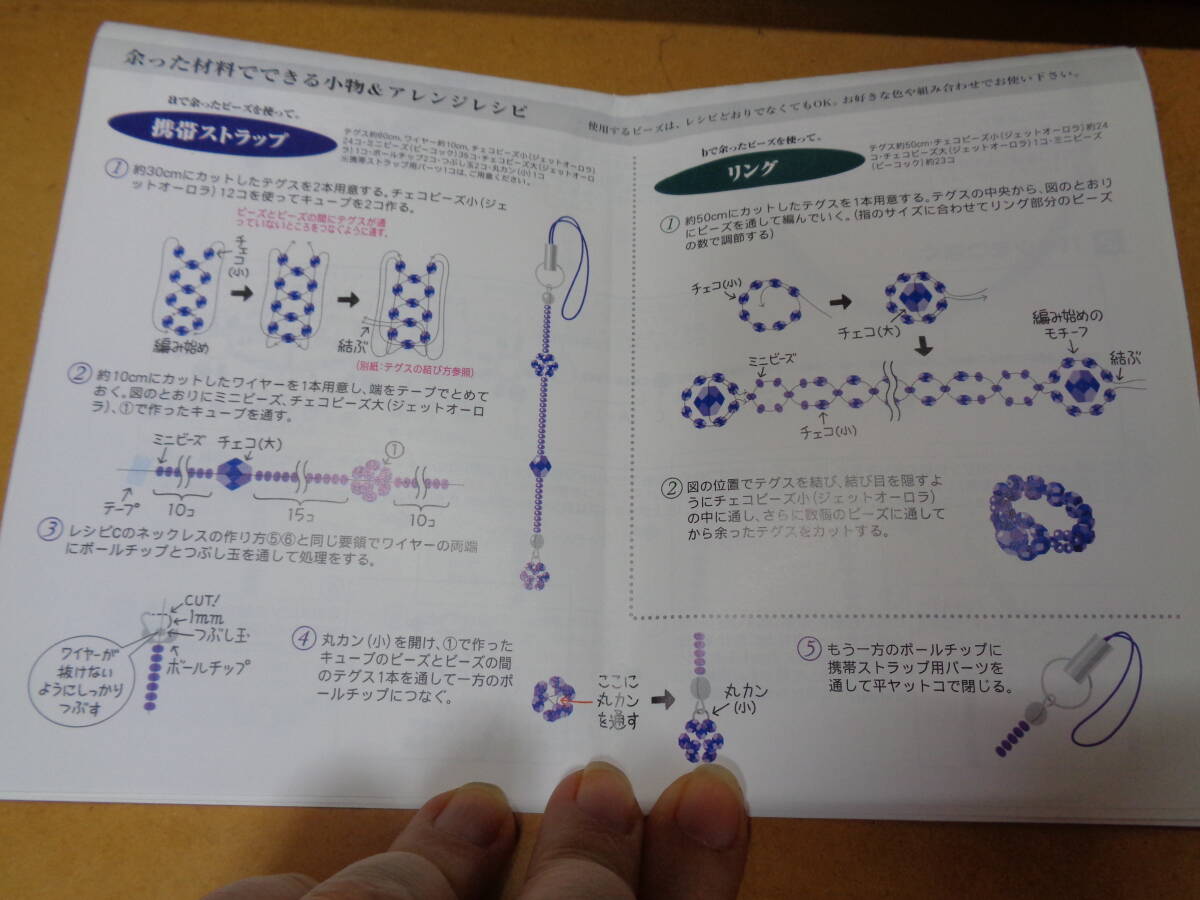 余った材料でできる小物&アレンジレシピ
使用するビーズは、レシピどおりでなくてもOK。お好きな色や組み合わせでお使い下さい。
aで余ったビーズを使って。
携帯ストラップ
テグス約60cm、ワイヤー約10cm、チェコビーズ小(ジェットオーロラ)
24コ・ミニビーズ(ピーコック)35コ・チェコビーズ大(ジェットオーロ
ラ)1コ・ボールチップ2コ・つぶし玉2コ・丸カン(小)1コ
※携帯ストラップ用パーツ1コは、ご用意ください。
① 約30cmにカットしたテグスを2本用意する。チェコビーズ小(ジェ
ットオーロラ)12コを使ってキューブを2コ作る。
ビーズとビーズの間にテグスが通
っていないところをつなぐように通す。
チェコ(小)
編み始め
結ぶ
(別紙:テグスの結び方参照)
② 約10cmにカットしたワイヤーを1本用意し、端をテープでとめて
おく。図のとおりにミニビーズ、チェコビーズ大(ジェットオーロ
ラ)、①で作ったキューブを通す。
ミニビーズ チェコ(大) ①
テープ 10コ 15コ 10コ
③ レシピCのネックレスの作り方⑤⑥と同じ要領でワイヤーの両端
にボールチップとつぶし玉を通して処理をする。
CUT!
1mm
つぶし玉
ボールチップ
ワイヤーが
抜けない
ようにしっかり
つぶす
④ 丸カン(小)を開け、①で作った
キューブのビーズとビーズの間
のテグス1本を通して一方のボ
ールチップにつなぐ。
ここに
丸カン
を通す
丸カン
(小)
⑤ もう一方のボールチップに
携帯ストラップ用パーツを
通して平ヤットコで閉じる。
bで余ったビーズを使って。
リング
テグス約50cm・チェコビーズ小(ジェットオーロラ)約24
コ・チェコビーズ大(ジェットオーロラ)1コ・ミニビーズ
(ピーコック)約23コ
① 約50cmにカットしたテグスを1本用意する。テグスの中央から、図のとおり
にビーズを通して編んでいく。(指のサイズに合わせてリング部分のビーズ
の数で調節する)
チェコ(小)
チェコ(大)
編み始めの
モチーフ
結ぶ
ミニビーズ
チェコ(小)
② 図の位置でテグスを結び、結び目を隠すよ
うにチェコビーズ小(ジェットオーロラ)
の中に通し、さらに数個のビーズに通して
から余ったテグスをカットする。